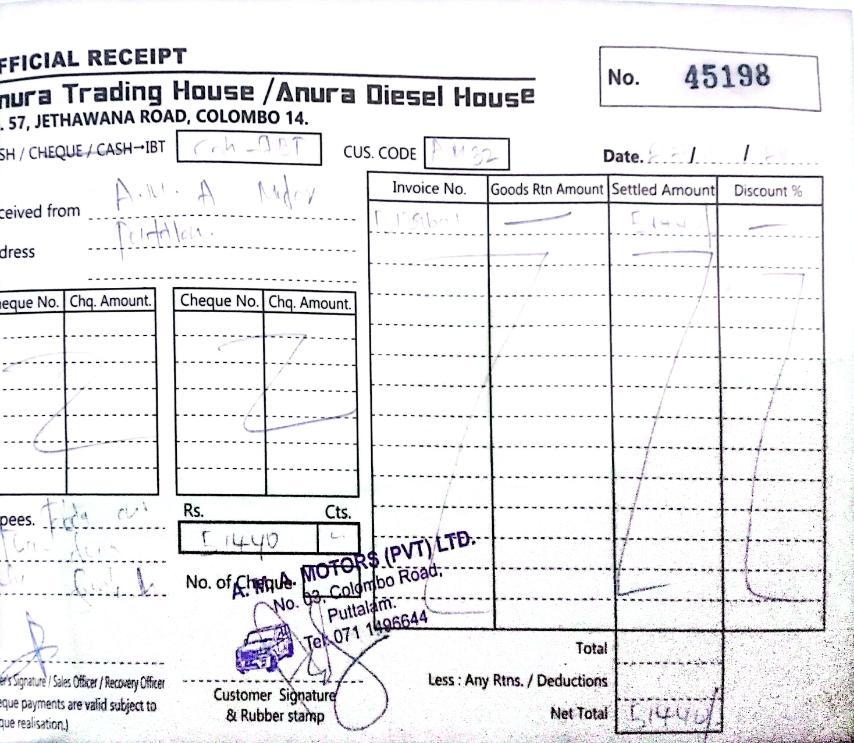 FFICIAL RECEIPT
No. 45198
nura Trading House /Anura Diesel House
. 57, JETHAWANA ROAD, COLOMBO 14.
SH / CHEQUE / CASH→IBT
CUS. CODE
Date. / /
ceived from A.M.A Motor
dress
Invoice No. Goods Rtn Amount Settled Amount Discount %
eque No. Chq. Amount. Cheque No. Chq. Amount.
pees.
Rs. Cts.
51440
No. of Cheque
A. M. A. MOTORS (PVT) LTD.
No. 03, Colombo Road,
Puttalam.
Tel: 071 1496644
Total
Less : Any Rtns. / Deductions
Net Total 51440/
er's Signature / Sales Officer / Recovery Officer
eque payments are valid subject to
que realisation.)
Customer Signature
& Rubber stamp